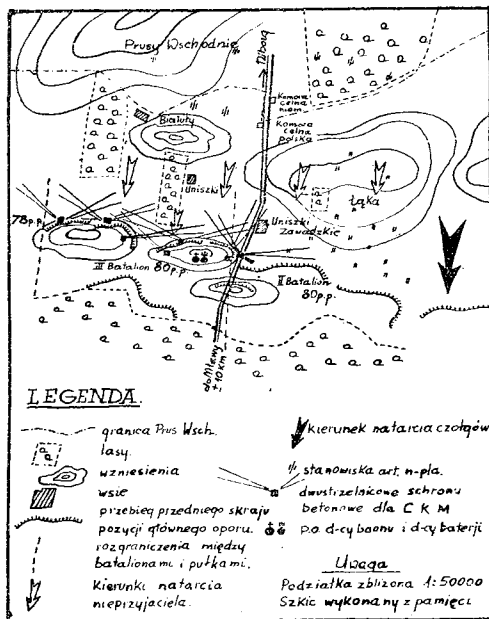 Prusy Wschodnie
Nibork
Komora
celna
niem.
Komora
celna
polska
Białuty
Uniszki
Łąka
78 p.p.
Uniszki
Zawadzkie
III Batalion 80 p.p.
II Batalion
80 p.p.
do Mławy
+10 km
LEGENDA.
granica Prus Wsch.
lasy.
wzniesienia
wsie
przebieg przedniego skraju
pozycji głównego oporu.
rozgraniczenia między
batalionami i pułkami.
Kierunki natarcia
nieprzyjaciela.
kierunek natarcia czołgów
stanowiska art. n-pla.
dwustrzelnicowe schrony
betonowe dla C K M
p.o. d-cy baonu i d-cy baterji
Uwaga
Podziałka zbliżona 1:50000
Szkic wykonany z pamięci